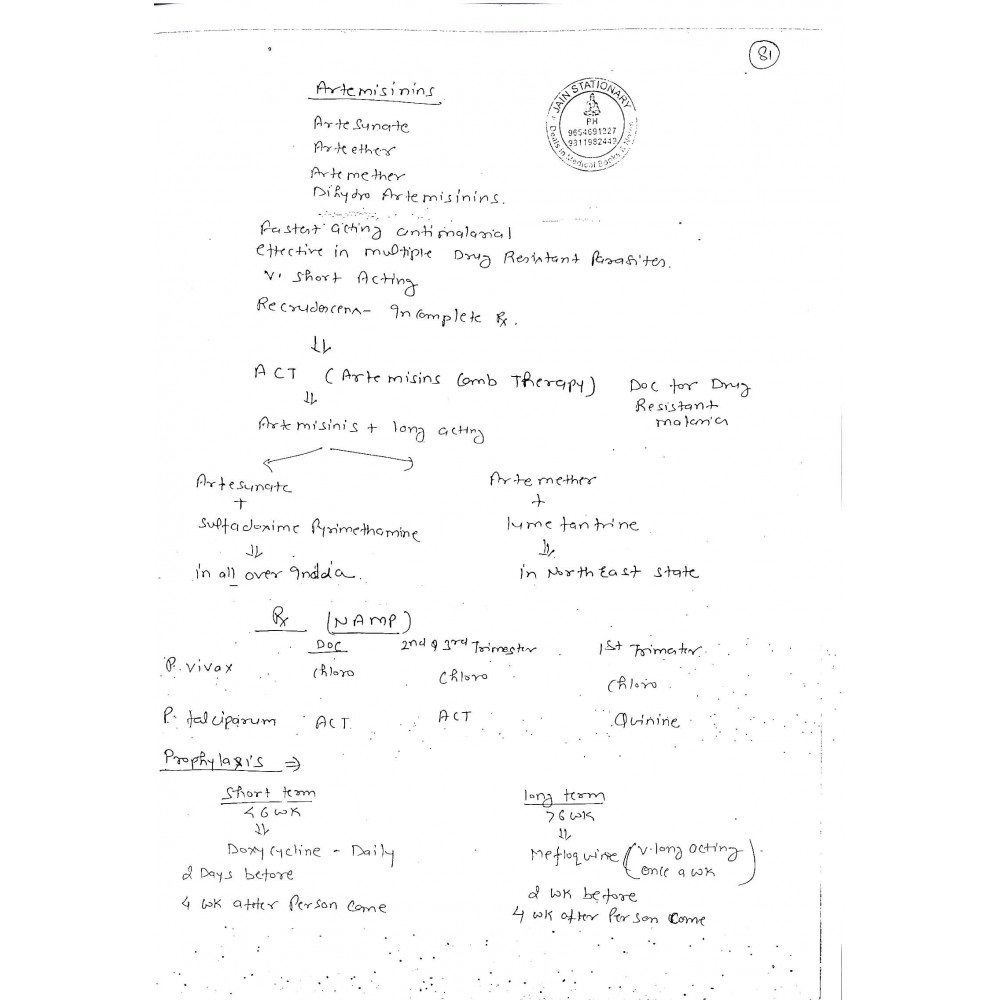 81
Artemisinins
JAIN STATIONARY
PH
9654691327
9311982449
Deals in Medical Books &
Artesunate
Arteether
Artemether
Dihydro Artemisinins.
Fastest acting antimalarial
effective in multiple Drug Resistant Parasites.
V. Short Acting
Recrudescens- Incomplete Rx.
⇓
ACT (Artemisins Comb Therapy) DOC for Drug
Resistant
malaria
⇓
Artemisinis + long acting
Artesunate Artemether
+ +
Sulfadoxime Pyrimethamine lumefantrine
⇓ ⇓
in all over Indida. in North East State
Rx (NAMP)
DOC 2nd & 3rd Trimester 1st Trimater
P. vivax Chloro Chloro Chloro
P. falciparum ACT ACT Quinine
Prophylaxis ⇒
Short term long term
<6 wk >6 wk
⇓ ⇓
Doxycycline - Daily Mefloquine (V. long acting
once a wk)
2 Days before 2 wk before
4 wk after Person Come 4 wk after Person Come